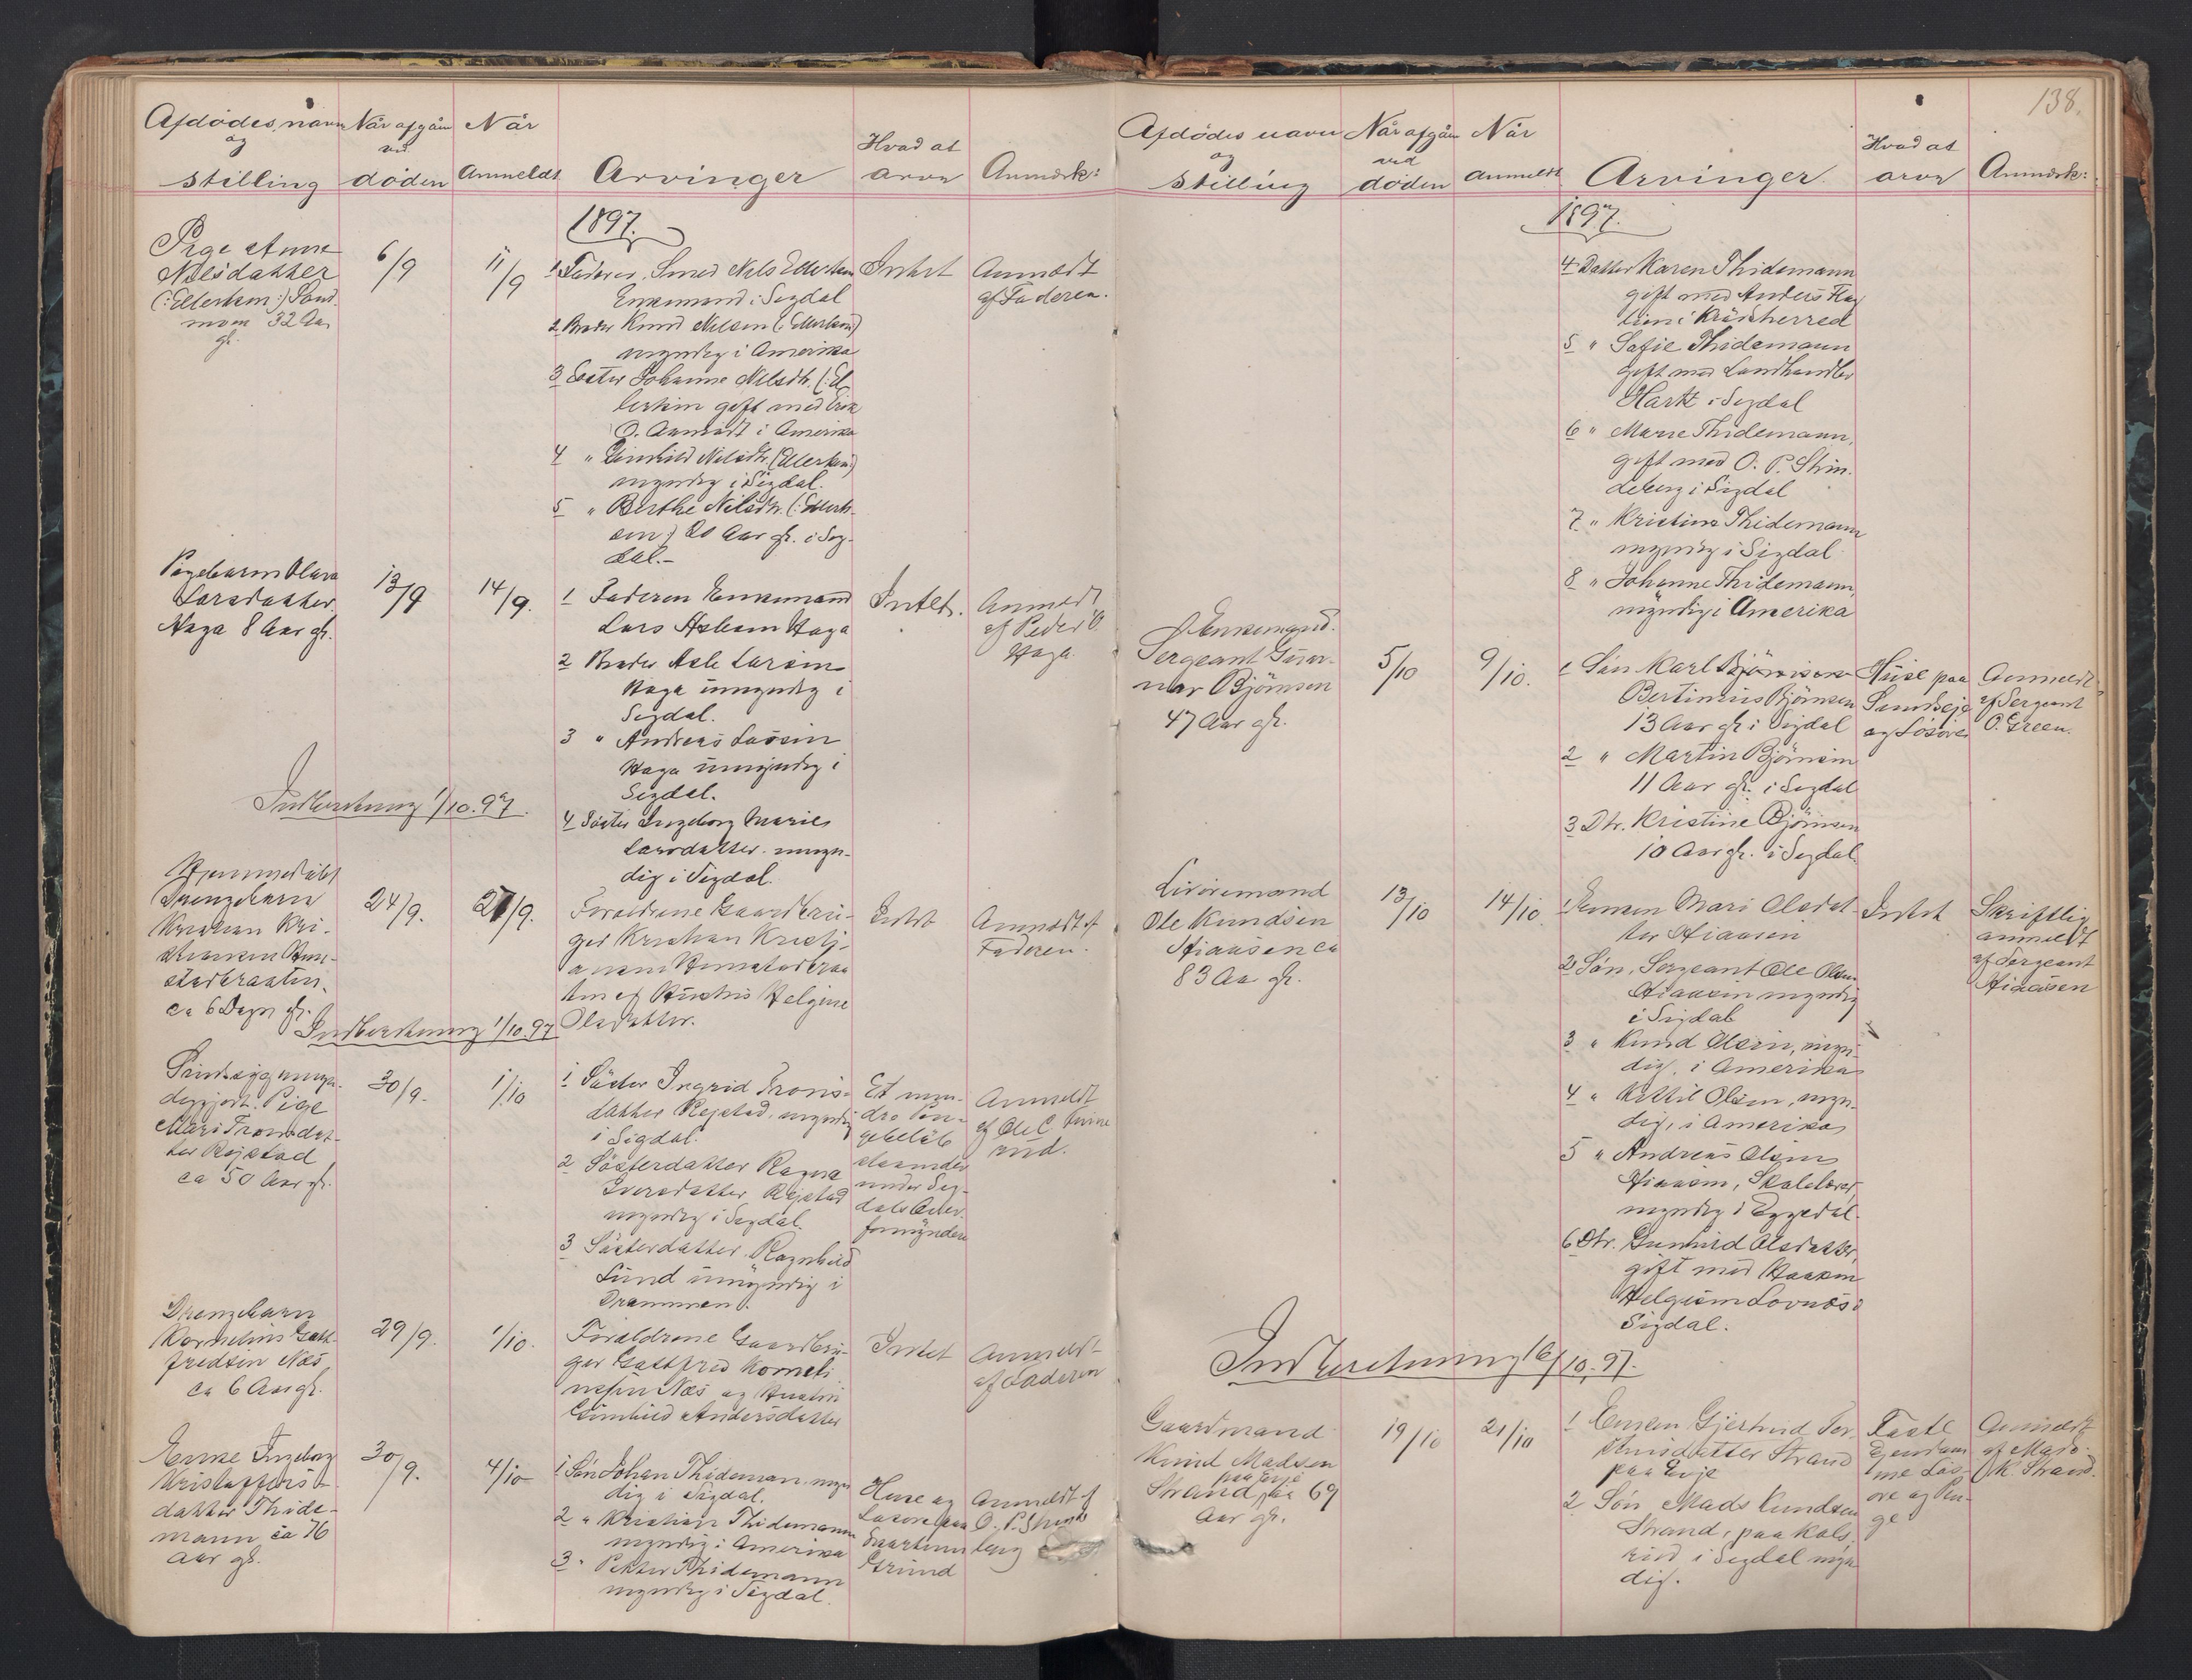 Afdödes navn
og
stilling
Når afgån
ved
döden
Når
Anmeldt
Arvinger
Hvad at
arve
Anmærk:
1897.
Pige Anne
Nilsdatter
32 Aar
gl.
6/9
11/9
1 Faderen, Smed Nils Ellertsen
Enkemand i Sigdal
2 Broder Knud Nilsen (: Ellertsen)
myndig i Amerika
3 Søster Johanne Nilsdtr. (: El
lertsen gift med Erik
O. i Amerika
4 " Gunhild Nilsdtr. (Ellertsen)
myndig i Sigdal.
5 " Berthe Nilsdtr. (: Ellert-
sen) 20 Aar gl. i Sig-
dal.-
Intet
Anmeldt
af Faderen.
Pigebarn Olava
Larsdatter
Haga 8 Aar gl.
13/9
14/9.
1 Faderen Enkemand
Lars Aslesen Haga
2 Broder Asle Larsen
Haga umyndig i
Sigdal.
3 " Andreas Larsen
Haga umyndig i
Sigdal.
4 Søster Ingeborg Marie
Larsdatter. umyn-
dig i Sigdal.
Intet.
Anmeldt
af Peder O.
Haga.
Indberetning 1/10.97.
Hjemmedøbt
Drengebarn
Kristian Kri-
stiansen
ca 6 Dage gl.
24/9.
27/9.
Forældrene Gaardbru-
ger Kristian Kristi-
ansen
og Hustru Helgine
Olsdatter.
Intet
Anmeldt af
Faderen.
Indberetning 1/10.97
Sindssyg umyn-
diggjort. Pige
Mari Tronsdat-
ter Rejstad
ca 50 Aar gl.
30/9.
1/10
1 Søster Ingrid Trons-
datter Rejstad, myndig
i Sigdal.
2 Søsterdatter Ragna
Iversdatter Rejstad
myndig i Sigdal.
3 Søsterdatter Ragnhild
Lund umyndig i
Drammen.
Et min-
dre Pen-
gebeløb
staaende
under Sig-
dals Over-
formynderi
Anmeldt
af Ole C.
Drengebarn
Kornelius Gott-
fredsen Næs
ca 6 Aar gl.
29/9.
1/10.
Forældrene Gaardbru-
ger Gottfred Korneli
usen Næs og Hustru
Gunhild Andersdatter
Intet
Anmeldt
af Faderen
Enke Ingeborg
Kristoffers-
datter Thide-
mann ca 76
Aar gl.
30/9.
4/10
1 Søn Johan Thideman. myn
dig i Sigdal.
2 " Kristian Thidemann
myndig i Amerika
3 " Petter Thidemann
myndig i Sigdal.
Huse og
Løsøre paa
Grund
Anmeldt af
O. P. Strinde
berg
138.
Afdödes navn
og
stilling
Når afgån
ved
döden
Når
anmeldt
Arvinger.
Hvad at
arve
Anmærk:
1897.
4 Datter Karen Thidemann
gift med Anders
i Krødsherred
5 " Sofie Thidemann
gift med Landhandler
Hartz i Sigdal
6 " Marie Thidemann,
gift med O. P. Strin-
deberg i Sigdal
7 " Kristine Thidemann
myndig i Sigdal
8 " Johanne Thidemann,
myndig i Amerika
Enkemand.
Sergeant Gun-
nar Bjørnsen
47 Aar gl.
5/10
9/10.
1 Søn Karl
Bertinius Bjørnsen
13 Aar gl. i Sigdal
2 " Martin Bjørnsen
11 Aar gl. i Sigdal
3 Dtr. Kristine Bjørnsen
10 Aar gl. i Sigdal.
Huse paa
og Løsøre
Anmeldt
af Sergeant
O. Green.
Livøremand
Ole Knudsen
Aiaasen ca
83 Aar gl.
13/10
14/10
1 Enken Mari Olsdat-
ter Aiaasen
2 Søn, Sergeant Ole Olsen
Aiaasen myndig
i Sigdal
3 " Knud Olsen, myn-
dig, i Amerika
4 " Kittil Olsen, myn-
dig, i Amerika
5 " Andreas Olsen
Aiaasen, Skolelærer,
myndig i Eggedal.
6 Dtr. Gunhild Olsdatter,
gift med Haaken
Helgesen Lovnæs i
Sigdal.
Intet
Skriftlig
anmeldt
af Sergeant
Aiaasen
Indberetning 16/10.97.
Gaardmand
Knud Madsen
paa Evje
Strand, ca 69
Aar gl.
19/10
21/10
1 Enken Gjertrud Tor-
steinsdatter Strand
paa Evje
2 Søn, Mads Knudsen
Strand, paa Kols-
rud i Sigdal myn
dig.
Faste
Ejendom-
me Løs-
øre og Pen-
ge
Anmeldt
af Mads
K. Strand.